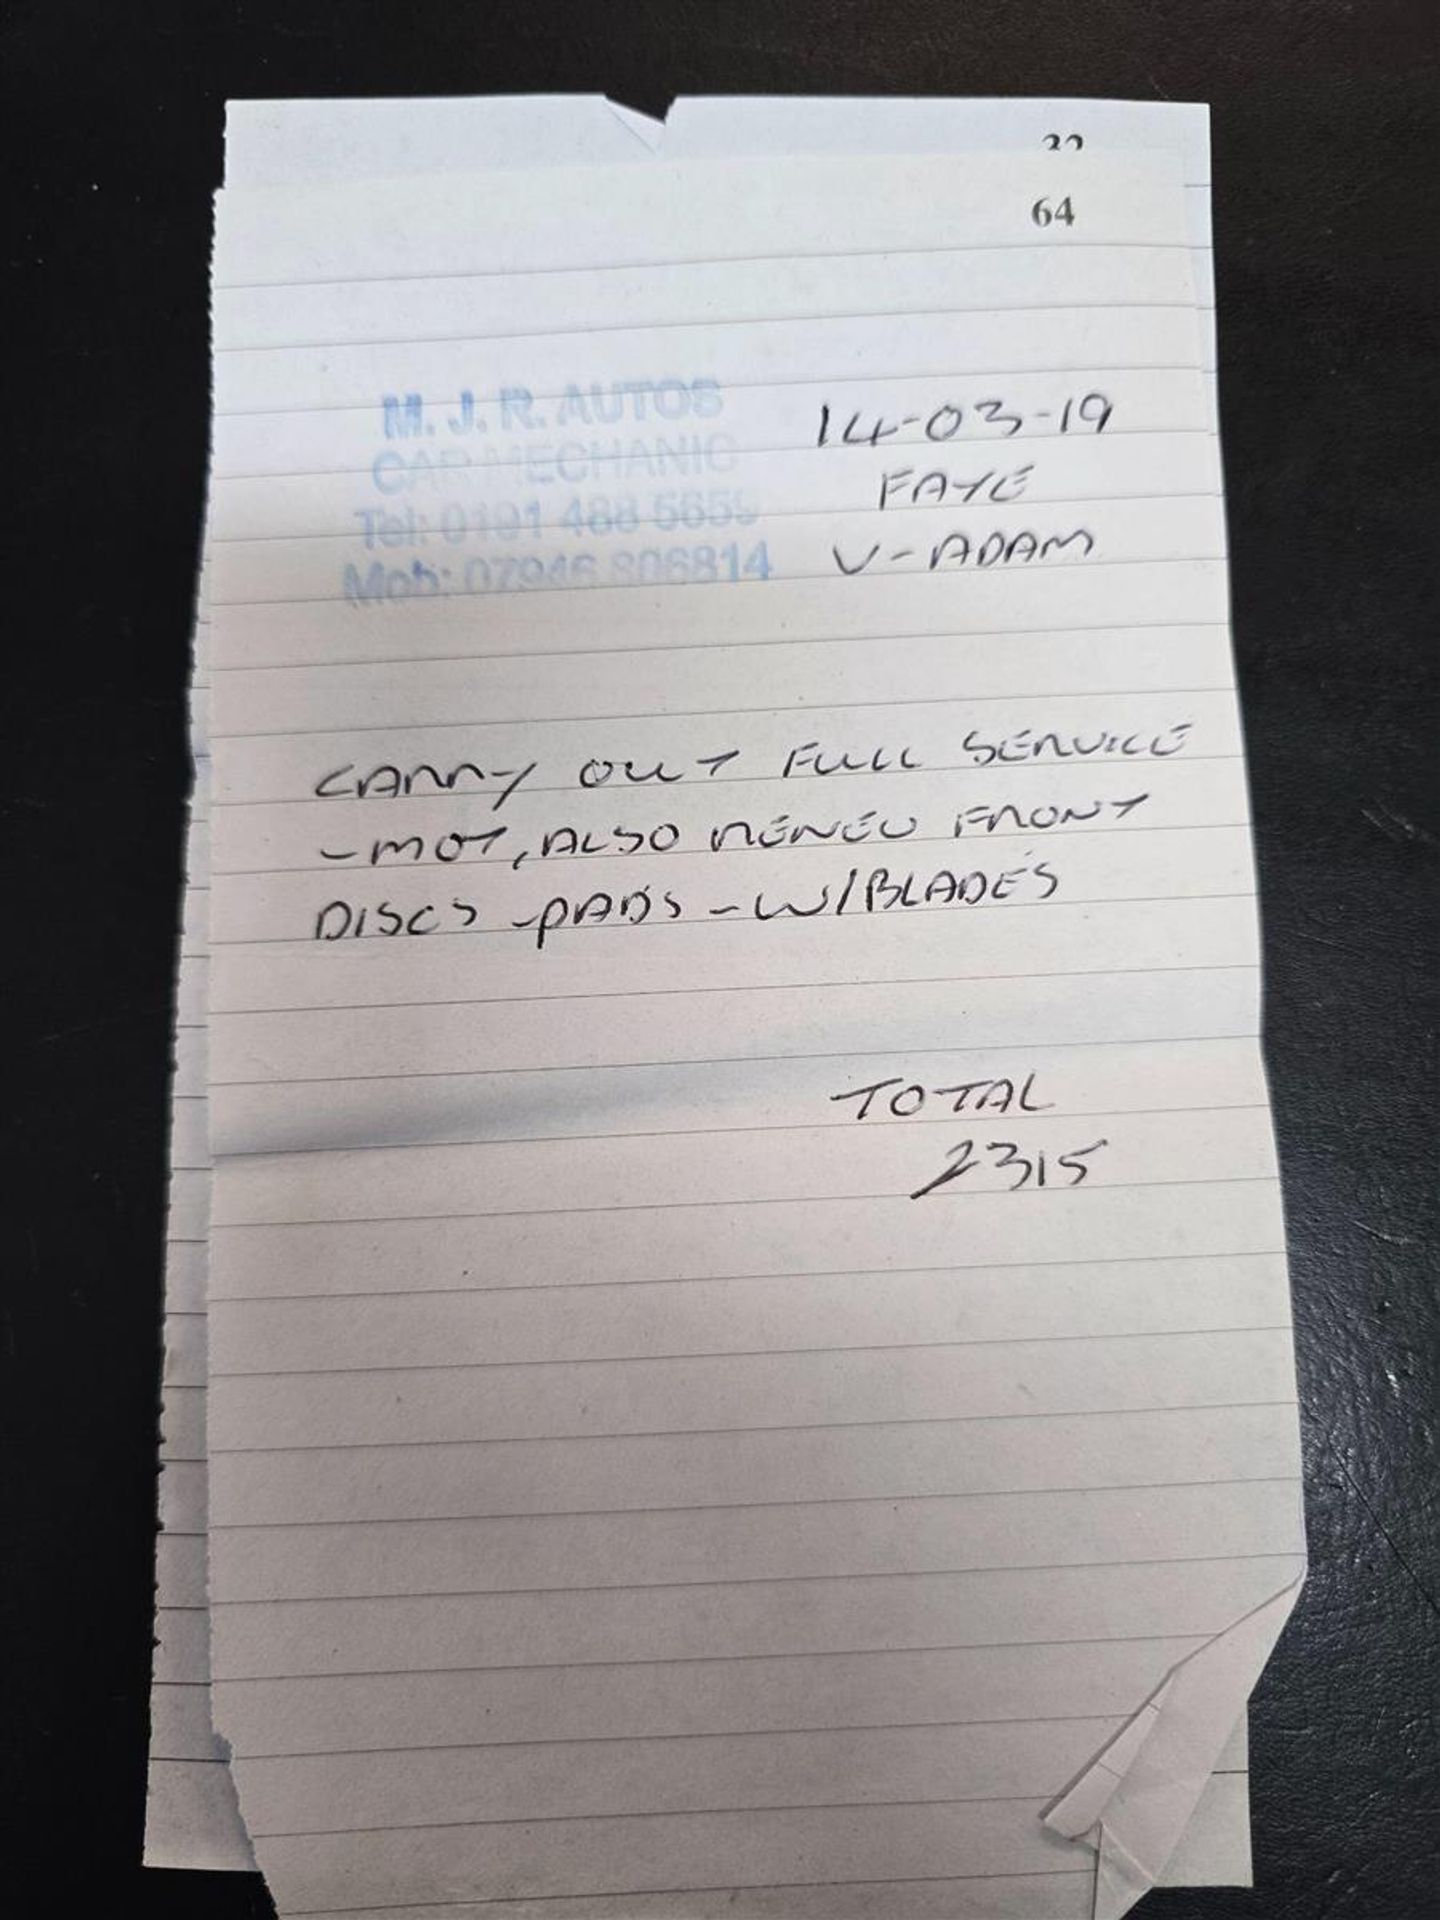 64
M. J. R. AUTOS
CAR MECHANIC
Tel: 0191 488 5659
Mob: 07946 806814
14-03-19
FAYE
V-ADAM
CARRY OUT FULL SERVICE
-MOT, ALSO RENEW FRONT
DISCS -PADS -W/BLADES
TOTAL
2315